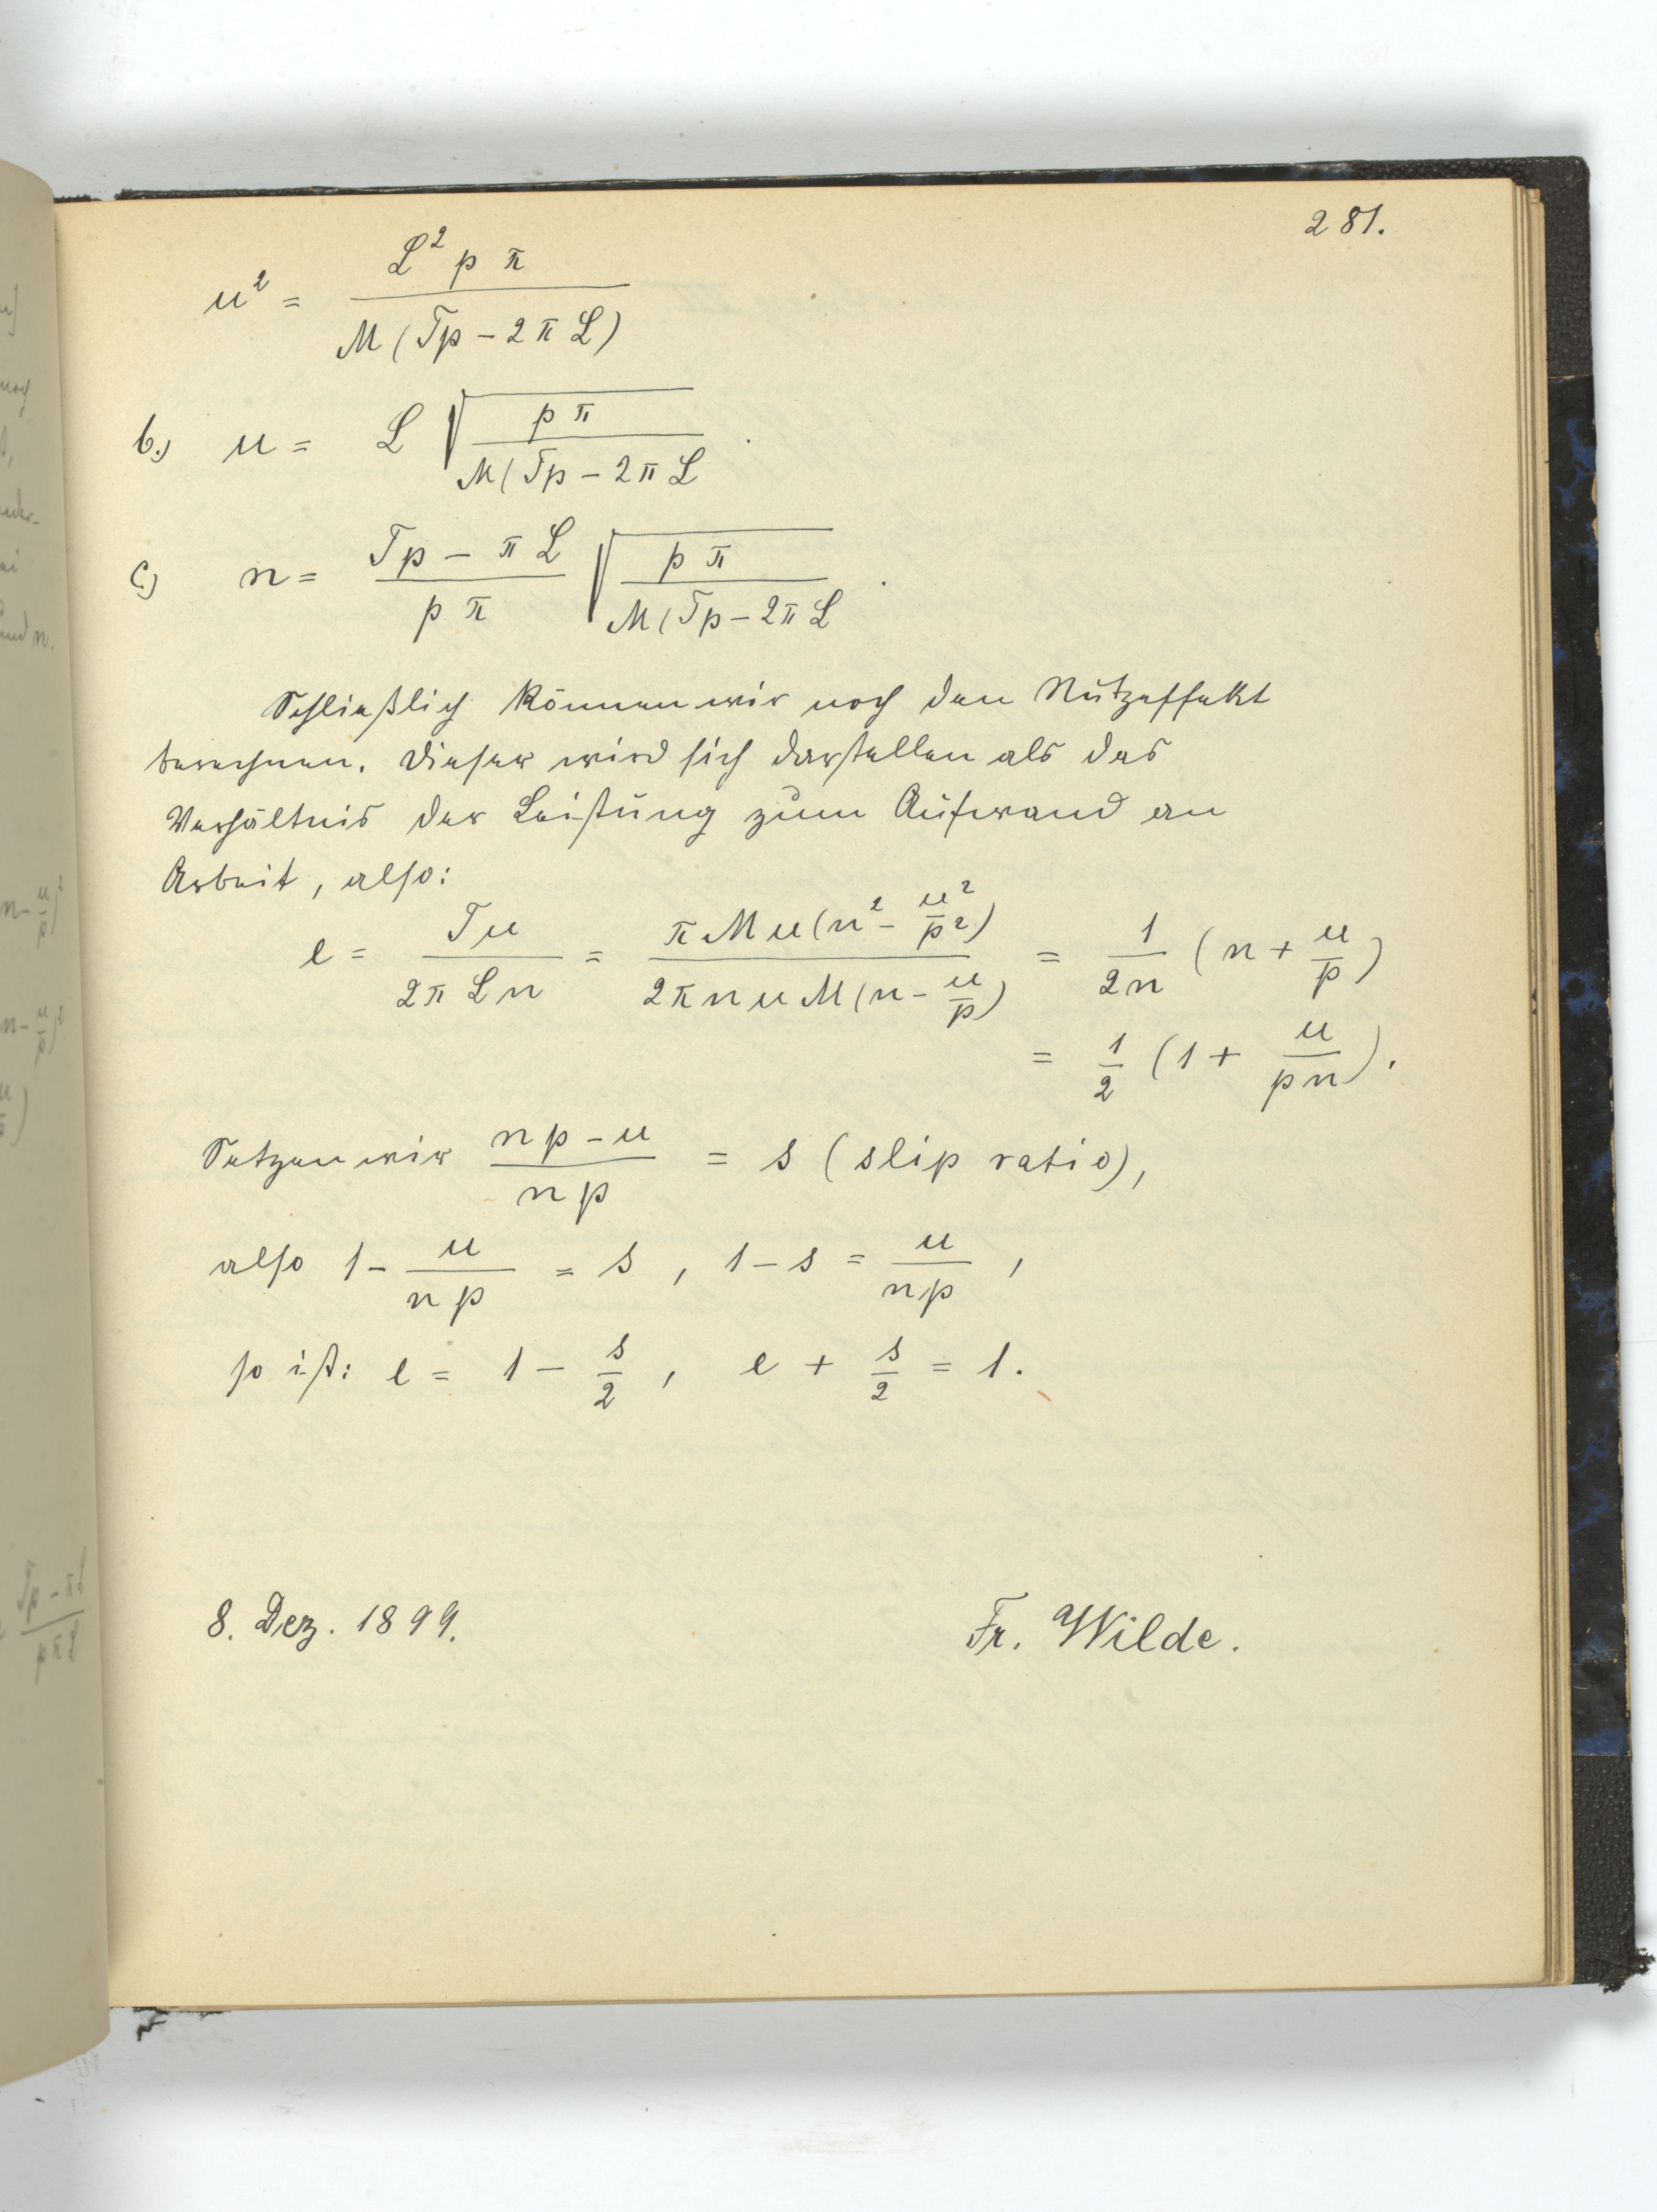 281.
u² = L² p π / M (Tp − 2 π L)
b.) u = L √ p π / M (Tp − 2 π L .
c) n = Tp − π L / p π √ p π / M (Tp − 2 π L .
Schließlich können wir noch den Nutzeffekt
berechnen. Dieser wird sich darstellen als das
Verhältnis der Leistung zum Aufwand an
Arbeit, also:
e = Tu / 2π L n = π M u (n² − u²/p²) / 2π n u M (n − u/p) = 1/2n (n + u/p)
= 1/2 (1 + u/pn).
Setzen wir np − u / np = s (slip ratio),
also 1 − u/np = s, 1 − s = u/np,
so ist: e = 1 − s/2, e + s/2 = 1.
8. Dez. 1899. Fr. Wilde.